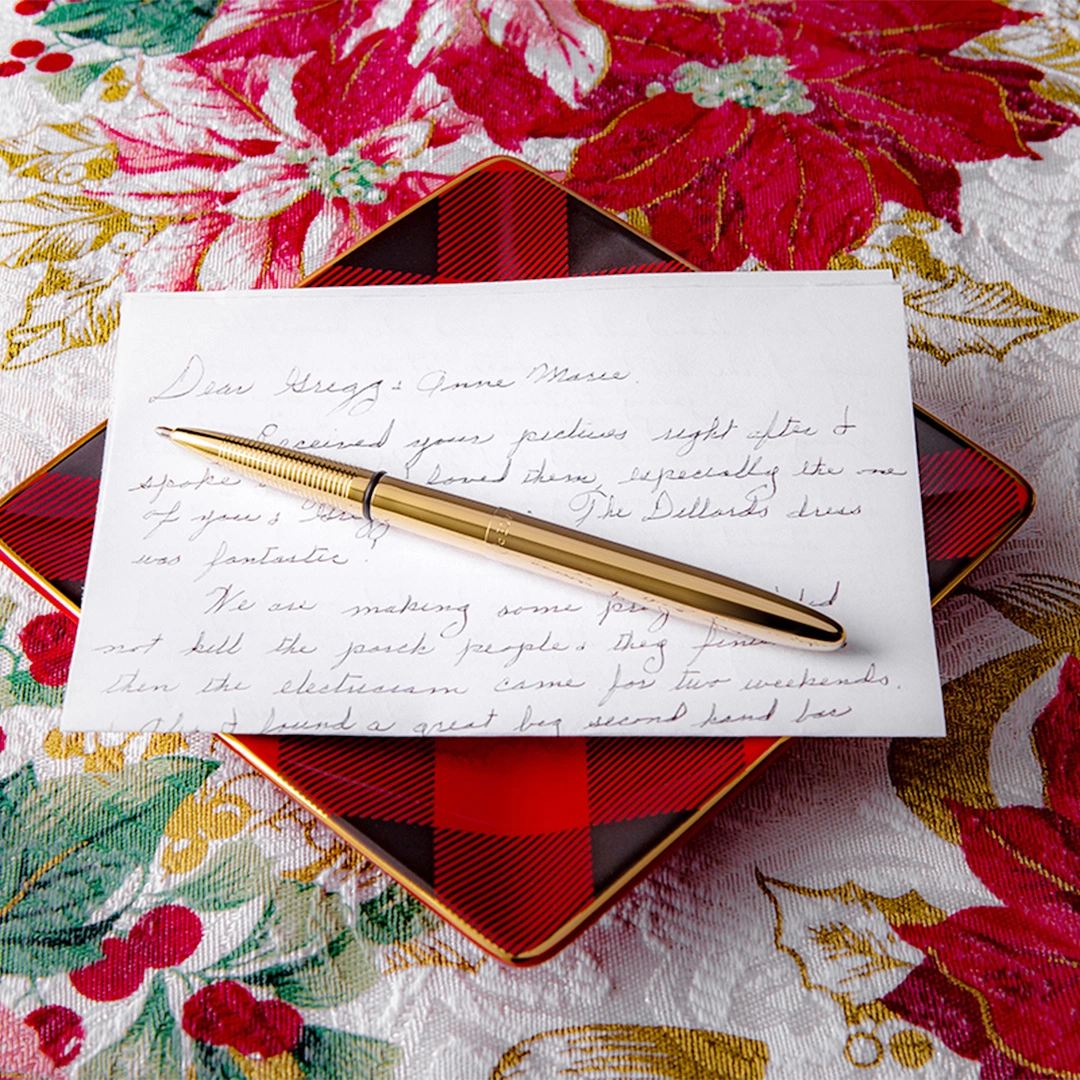 Dear Gregg & Anne Marie.
Received your pictures right after I
spoke I loved them, especially the one
of you & Gregg The Dillards dress
was fantastic.
We are making some
not kill the porch people & they
then the electricians came for two weekends.
I found a great big second hand bar